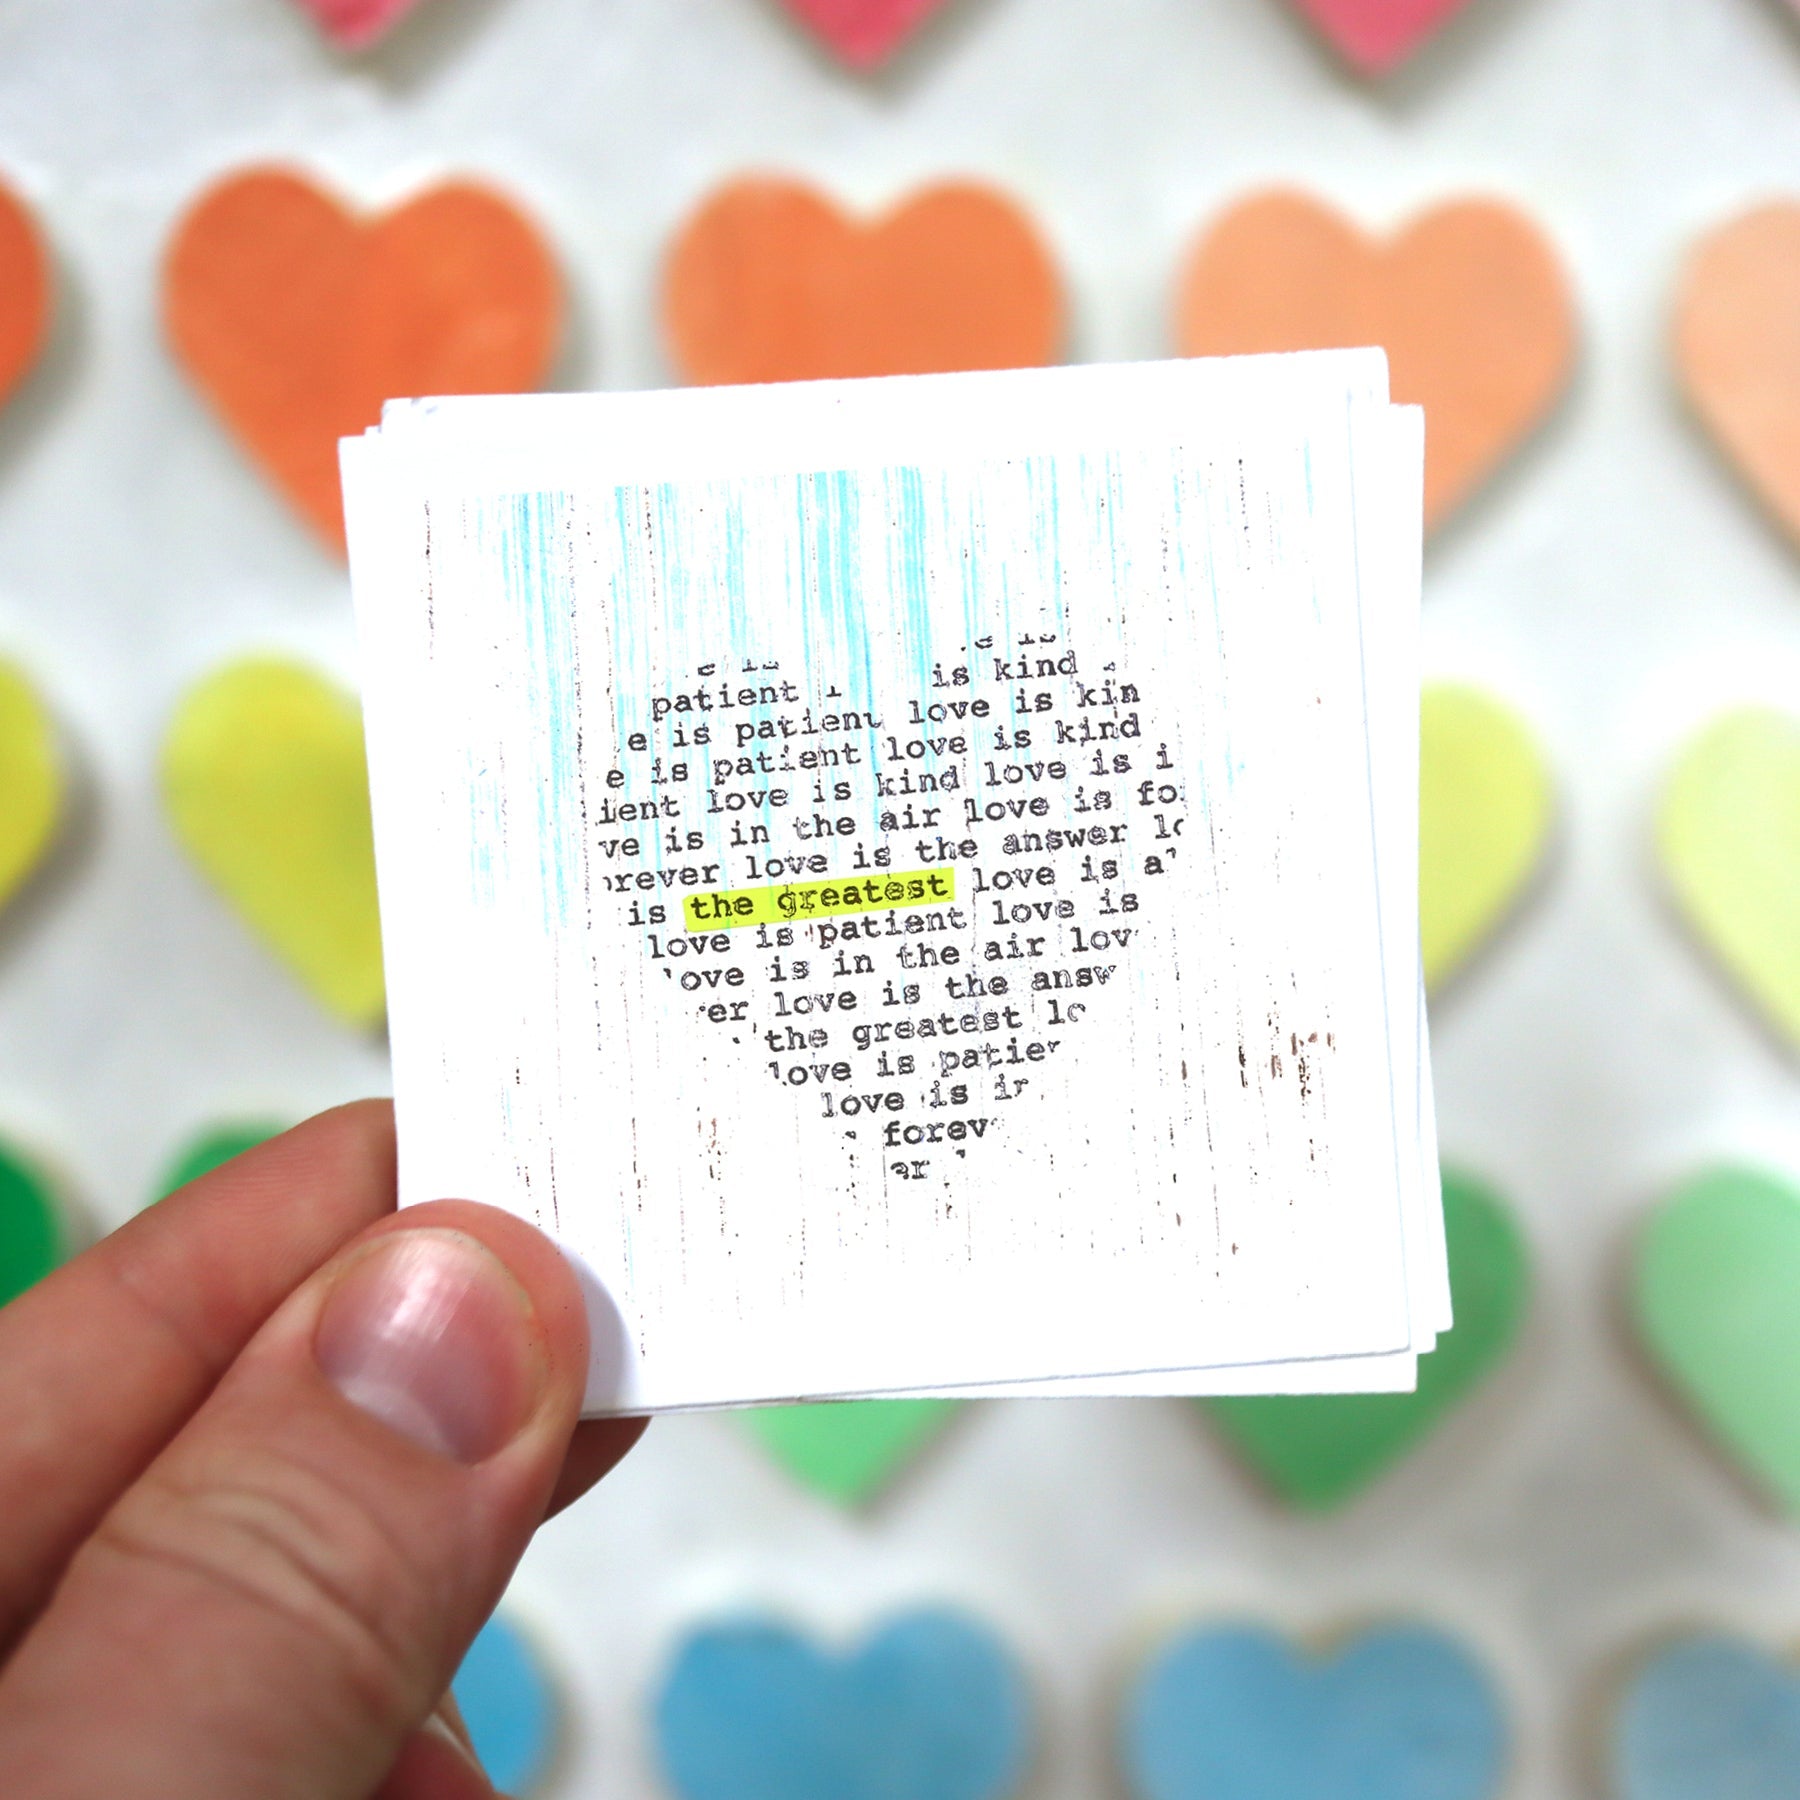 is kind
patient
e is patient love is kin
e is patient love is kind
ient love is kind love is i
ve is in the air love is fo
rever love is the answer lo
is the greatest love is a
love is patient love is
ove is in the air lov
er love is the answ
the greatest lo
love is patie
love is in
forev
er